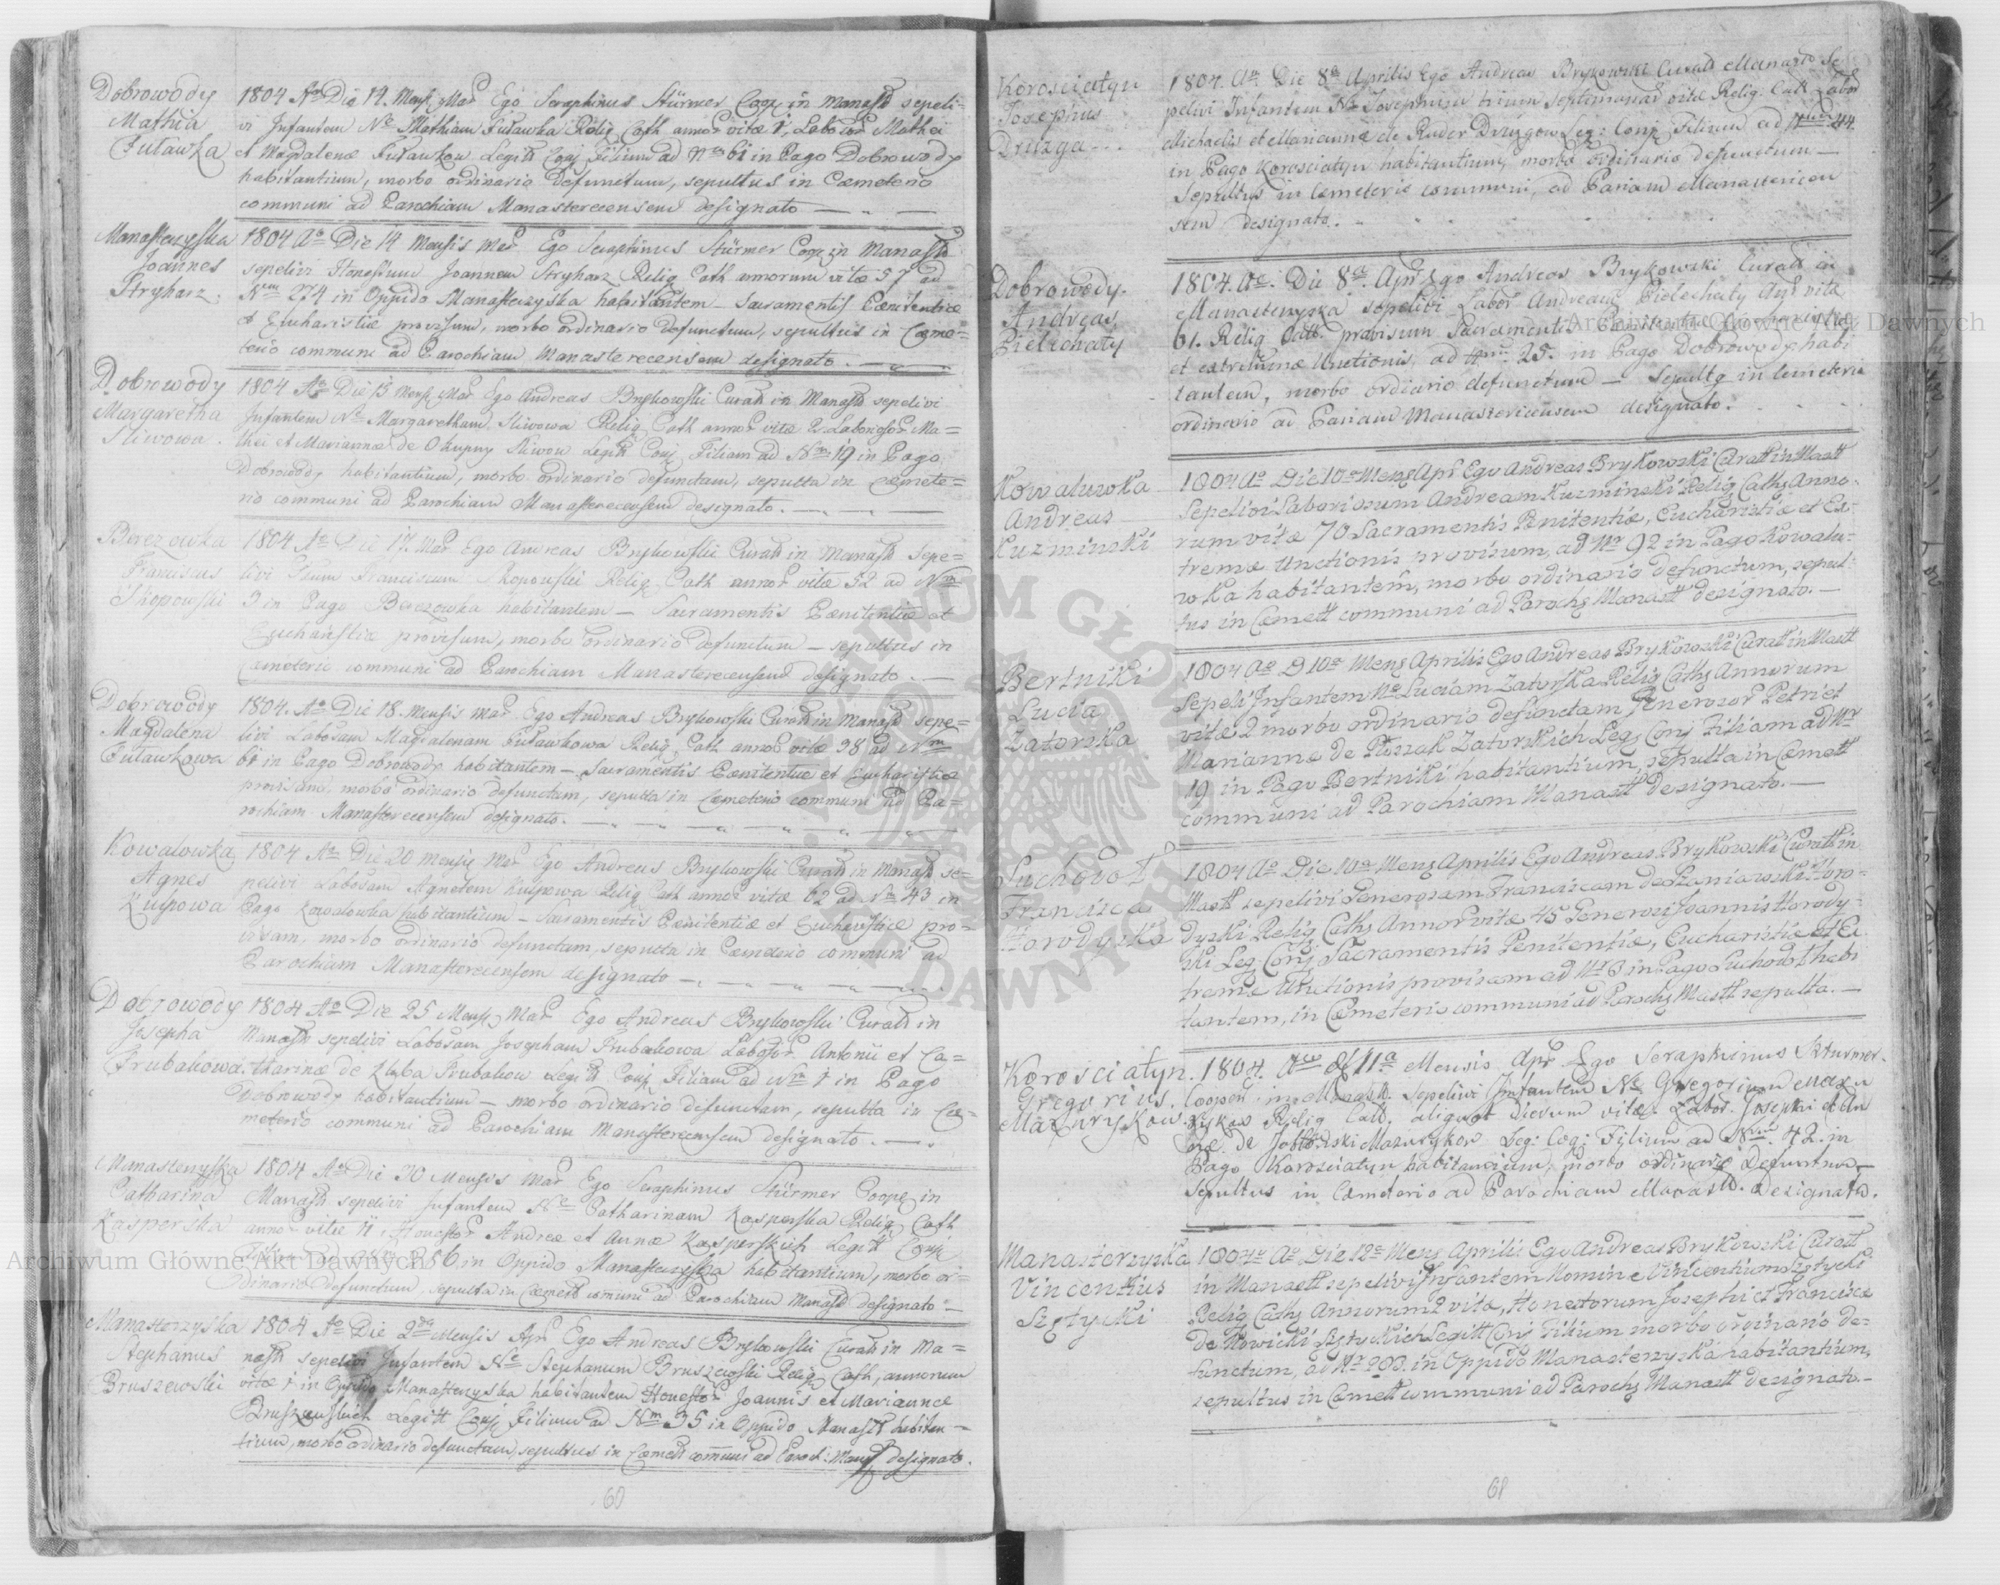 Dobrowody
Mathia
Futawka
1804 Ao Die 14. Mensis Mar Ego Seraphinus Stürmer Coop in Manast sepeli-
vi Infantem Ne Mathiam Futawka Relig Cath annor vitæ 1, Labosor Mathei
et Magdalenæ Futawkow Legitt Conj Filium ad Nm 61 in Pago Dobrowody
habitantium, morbo ordinario defunctum, sepultus in Cæmeterio
communi ad Parochiam Manasterecensem designato
Manasterzyska
Joannes
Stryharz.
1804 Ao Die 14 Mensis Mar Ego Seraphinus Stürmer Coop in Manast
sepelivi Honestum Joannem Stryharz Relig Cath annorum vitæ 57 ad
Nm 274 in Oppido Manasterzyska habitantem – Sacramentis Pœnitentiæ
et Eucharistiæ provisum, morbo ordinario defunctum, sepultus in Cæme=
terio communi ad Parochiam Manasterecensem designato.
Dobrowody
Margaretha
Sliwowa.
1804 Ao Die 15 Mensis Mar Ego Andreas Brykowski Curatt in Manast sepelivi
Infantem Ne Margaretham Sliwowa Relig Cath annor vitæ Laboriosor Ma=
thei et Mariannæ de Okupny Sliwow Legitt Conj Filiam ad Nm 19 in Pago
Dobrowody habitantium, morbo ordinario defunctam, sepulta in Cæmete=
rio communi ad Parochiam Manasterecensem designato.
Berezowka
Franciscus
Skopowski
1804 Ao Die 17. Mar Ego Andreas Brykowski Curatt in Manast sepe=
livi Franciscum Skopowski Relig Cath annor vitæ 52 ad Nm
9 in Pago Berezowka habitantem – Sacramentis Pœnitentiæ et
Eucharistiæ provisum, morbo ordinario defunctum – sepultus in
Cæmeterio communi ad Parochiam Manasterecensem designato.
Dobrowody
Magdalena
Futawkowa
1804. Ao Die 18. Mensis Mar Ego Andreas Brykowski Curatt in Manast sepe=
livi Labosam Magdalenam Futawkowa Relig Cath annor vitæ 38 ad Nm
61 in Pago Dobrowody habitantem – Sacramentis Pœnitentiæ et Eucharistiæ
provisam, morbo ordinario defunctam, sepulta in Cæmeterio communi ad Pa=
rochiam Manasterecensem designato.
Kowalowka
Agnes
Kulpowa
1804 Ao Die 20 Mensis Mar Ego Andreas Brykowski Curatt in Manast se=
pelivi Labosam Agnetem Kulpowa Relig Cath annor vitæ 62 ad No 43 in
Pago Kowalowka habitantium – Sacramentis Pœnitentiæ et Eucharistiæ pro=
visam, morbo ordinario defunctam, sepulta in Cæmeterio communi ad
Parochiam Manasterecensem designato
Dobrowody
Josepha
Trubakowa.
1804 Ao Die 25 Mensis Mar Ego Andreas Brykowski Curatt in
Manast sepelivi Labosam Josepham Trubakowa Labosor Antonii et Ca=
tharinæ de Trubakow Legitt Conj Filiam ad Nm 1 in Pago
Dobrowody habitantium – morbo ordinario defunctam, sepulta in Cæ=
meterio communi ad Parochiam Manasterecensem designato.
Manasterzyska
Catharina
Kasperska
1804 Ao Die 30 Mensis Mar Ego Seraphinus Stürmer Coop in
Manast sepelivi Infantem Ne Catharinam Kasperska Relig Cath
annor vitæ Honestor Andreæ et Annæ Kasperskich Legitt Conj
Filiam ad 356 in Oppido Manasterzyska habitantium, morbo or=
dinario defunctum, sepulta in Cæmett comuni ad Parochiam Manast designato
Manasterzyska
Stephanus
Bruszewski
1804 Ao Die 2da Mensis Apr Ego Andreas Brykowski Curatt in Ma=
nast sepelivi Infantem Ne Stephanum Bruszewski Relig Cath, annorum
vitæ 1 in Oppido Manasterzyska habitantem Honestor Joannis et Mariannæ
Bruszewskich Legitt Conj Filium ad Nm 35 in Oppido Manast habitan=
tium, morbo ordinario defunctum, sepultus in Cæmett communi ad Paroch: Manast designato.
60
Korosciatyn
Josephus
Druzga
1804. Ao Die 8a Aprilis Ego Andreas Brykowski Curatt Manast Se
pelivi Infantem Ne Josephum trium septimanar vitæ Relig. Cath. Labor
Michaelis et Mariannæ de Ruder Druzgow Leg: Conj: Filium ad Num 44.
in Pago Korosciatyn habitantium, morbo ordinario defunctum –
Sepultus in Cemeterio communi, ad Pariam Manasterecen
sem designato.
Dobrowody.
Andreas
Pielechaty
1804. Ao. Die 8a. Apr Ego Andreas Brykowski Curatt in
Manasterzyska sepelivi Labor Andream Pielechaty Ayr vitæ
61. Relig Cath. provisum Sacramentis Pœnitentiæ, Eucharistiæ
et extremæ Unctionis, ad Num 25. in Pago Dobrowody habi
tantem, morbo ordiario defunctum – Sepultg in Cemeterio
ordinario ad Pariam Manastericensem designato.
Kowaluwka
Andreas
Kuzminski
1804 Ao Die 10a Mens Apr Ego Andreas Brykowski Curatt in Mastt
Sepelivi Laboriosum Andream Kuzminski Relig Caths Anno-
rum vitæ 70 Sacramentis Penitentiæ, Eucharistiæ et Ex-
tremæ Unctionis provisum, ad Nr 92 in Pago Kowalu-
wka habitantem, morbo ordinario defunctum, sepul-
tus in Cæmett communi ad Parochs Manastt designato.
Bertniki
Lucia
Zatorska
1804 Ao D 10a Mens Aprilis Ego Andreas Brykowski Curatt in Mastt
Sepeli Infantem Ne Luciam Zatorska Relig Caths Annorum
vitæ 2 morbo ordinario defunctam Generosor Petri et
Mariannæ de Ptaszak Zatorskich Leg Conj Filiam ad Nr
19 in Pago Bertniki habitantium, sepulta in Cæmett
communi ad Parochiam Manastt designato.
Suchodoł
Francisca
Horodyska
1804 Ao Die 10a Mens Aprilis Ego Andreas Brykowski Curatt in
Mastt sepelivi Generosam Franciscam de Paniawska Horo-
dyski Relig Caths Annor vitæ 45 Generosi Joannis Horody-
ski Leg Conj Sacramentis Penitentiæ, Eucharistiæ et Ex-
tremæ Unctionis provisam ad Nr 8 in Pago Suchodoł habi
tantem, in Cæmeterio communi ad Parochs Mastt sepulta.
Korosciatyn.
Gregorius.
Mazuryskow
1804. Ao D 11a Mensis Apr Ego Seraphinus Sturmer
Cooper in Manast. Sepelivi Infantem Ne Gregorium Mazu
rykow Relig Cath. aliquot dierum vitæ. Labor. Josephi et An
næ de Mazurykow Leg: Coj: Filium ad Num. 42. in
Pago Korosciatyn habitantium, morbo ordinario Defunctum
Sepultus in Cemeterio ad Parochiam Manast. Designata.
Manasterzyska
Vincentius
Szptycki
1804 Ao Die 12a Mens Aprilis Ego Andreas Brykowski Curatt
in Manastt sepelivi Infantem Nomine Vincentium Szptycki
Relig Caths Annorum 2 vitæ, Honestorum Josephi et Franciscæ
de Nowicki Szptyckich Legitt Conj Filium morbo ordinario de-
functum, ad Nr 203. in Oppido Manasterzyska habitantium,
sepultus in Cæmett communi ad Parochs Manastt designato.
61
Archiwum Główne Akt Dawnych
Archiwum Główne Akt Dawnych
ARCHIWUM GŁÓWNE AKT DAWNYCH